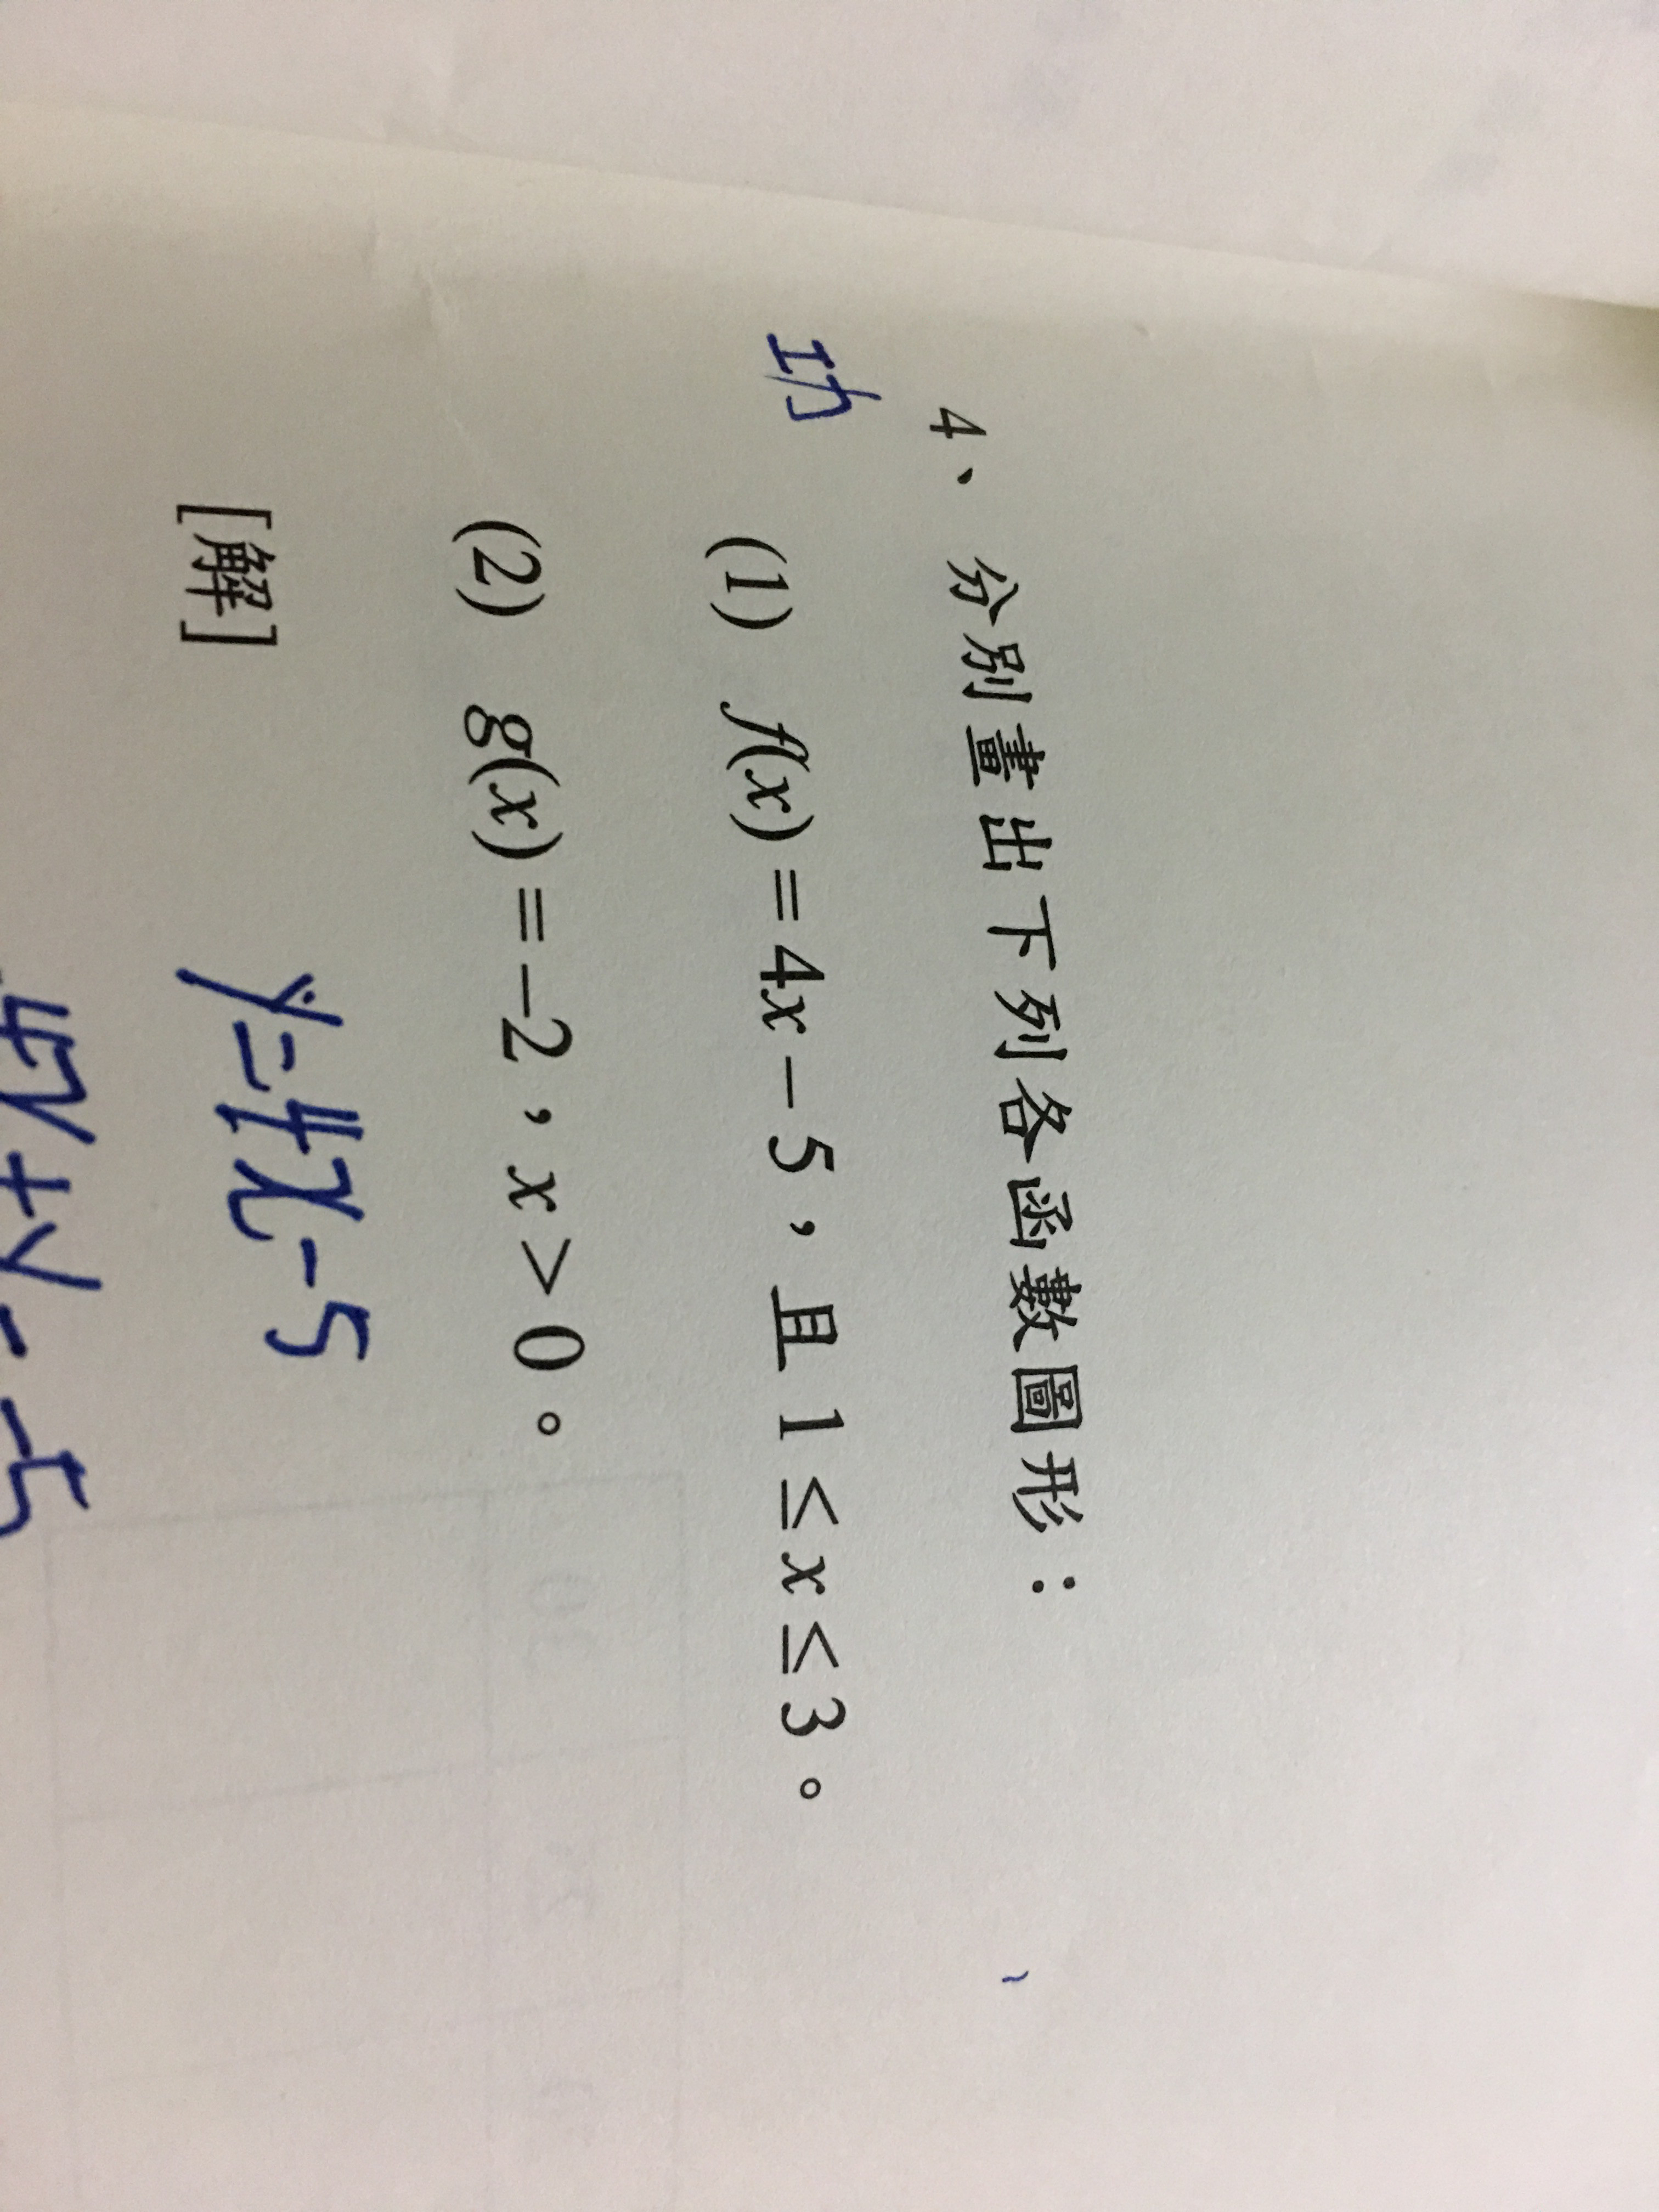 4、分別畫出下列各函數圖形：
功
(1) f(x)=4x−5，且1≤x≤3。
(2) g(x)=−2，x>0。
[解]
y=4x-5